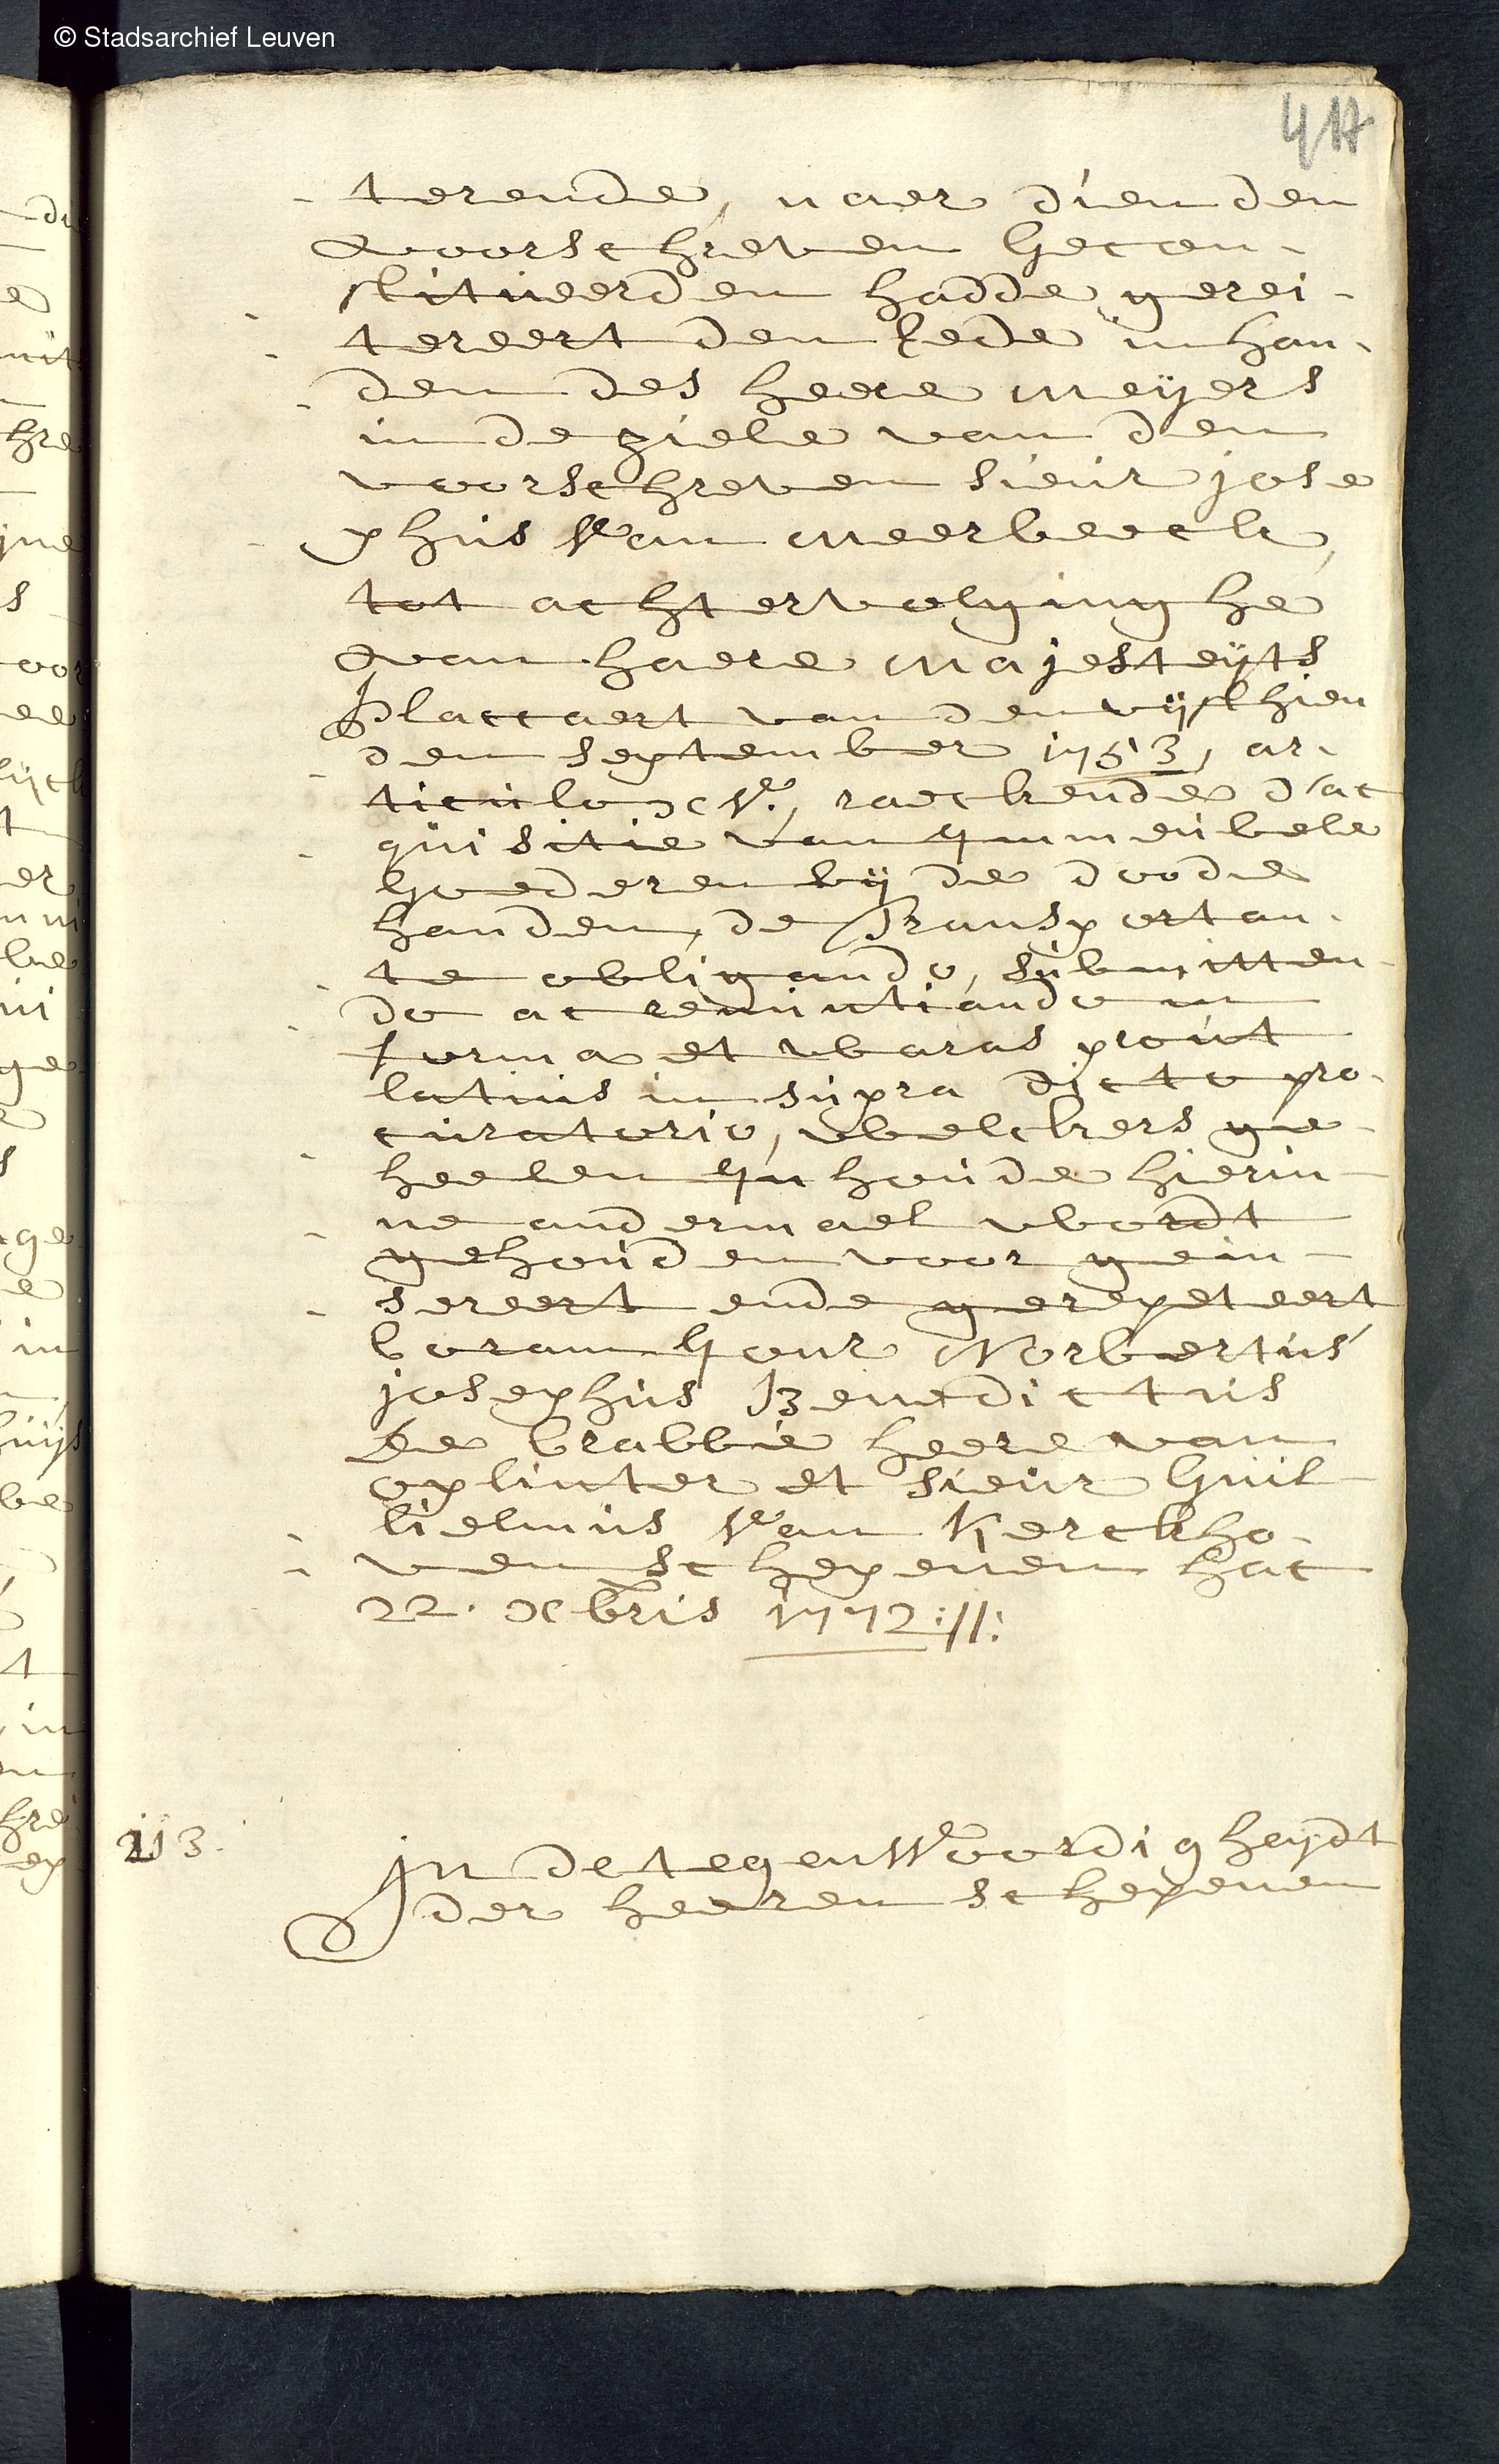 © Stadsarchief Leuven
417
terende, naer dien den
voorschreven Gecon-
stitueerden hadde gerei-
tereert den Eede in han-
den des heere meÿers
in de ziele van den
voorschreven sieur jose
phus Van meerbeeck,
tot achtervolginghe
van haere majesteÿts
Placcaert van den vÿfthien
den september 1753, ar-
ticulo XV., raeckende d'ac
quisitie van Immeubele
Goederen bÿ de doode
handen, de Transportan-
te obligando, submitten-
do ac renuntiando in
forma et waras prout
latius in supra dicto pro-
curatorio, welckers ge-
heelen Inhoude hierin-
ne andermael wordt
gehouden voor gein-
sereert ende gerepeteert
coram Jonr Norbertus
josephus Benedictus
De Crabbé heere van
oplinter et sieur Guil
lielmus Van Kerckho-
ven schepenen hac
22. Xbris 1772 ://:
113.
In de tegenWoordigheÿdt
der heeren schepenen